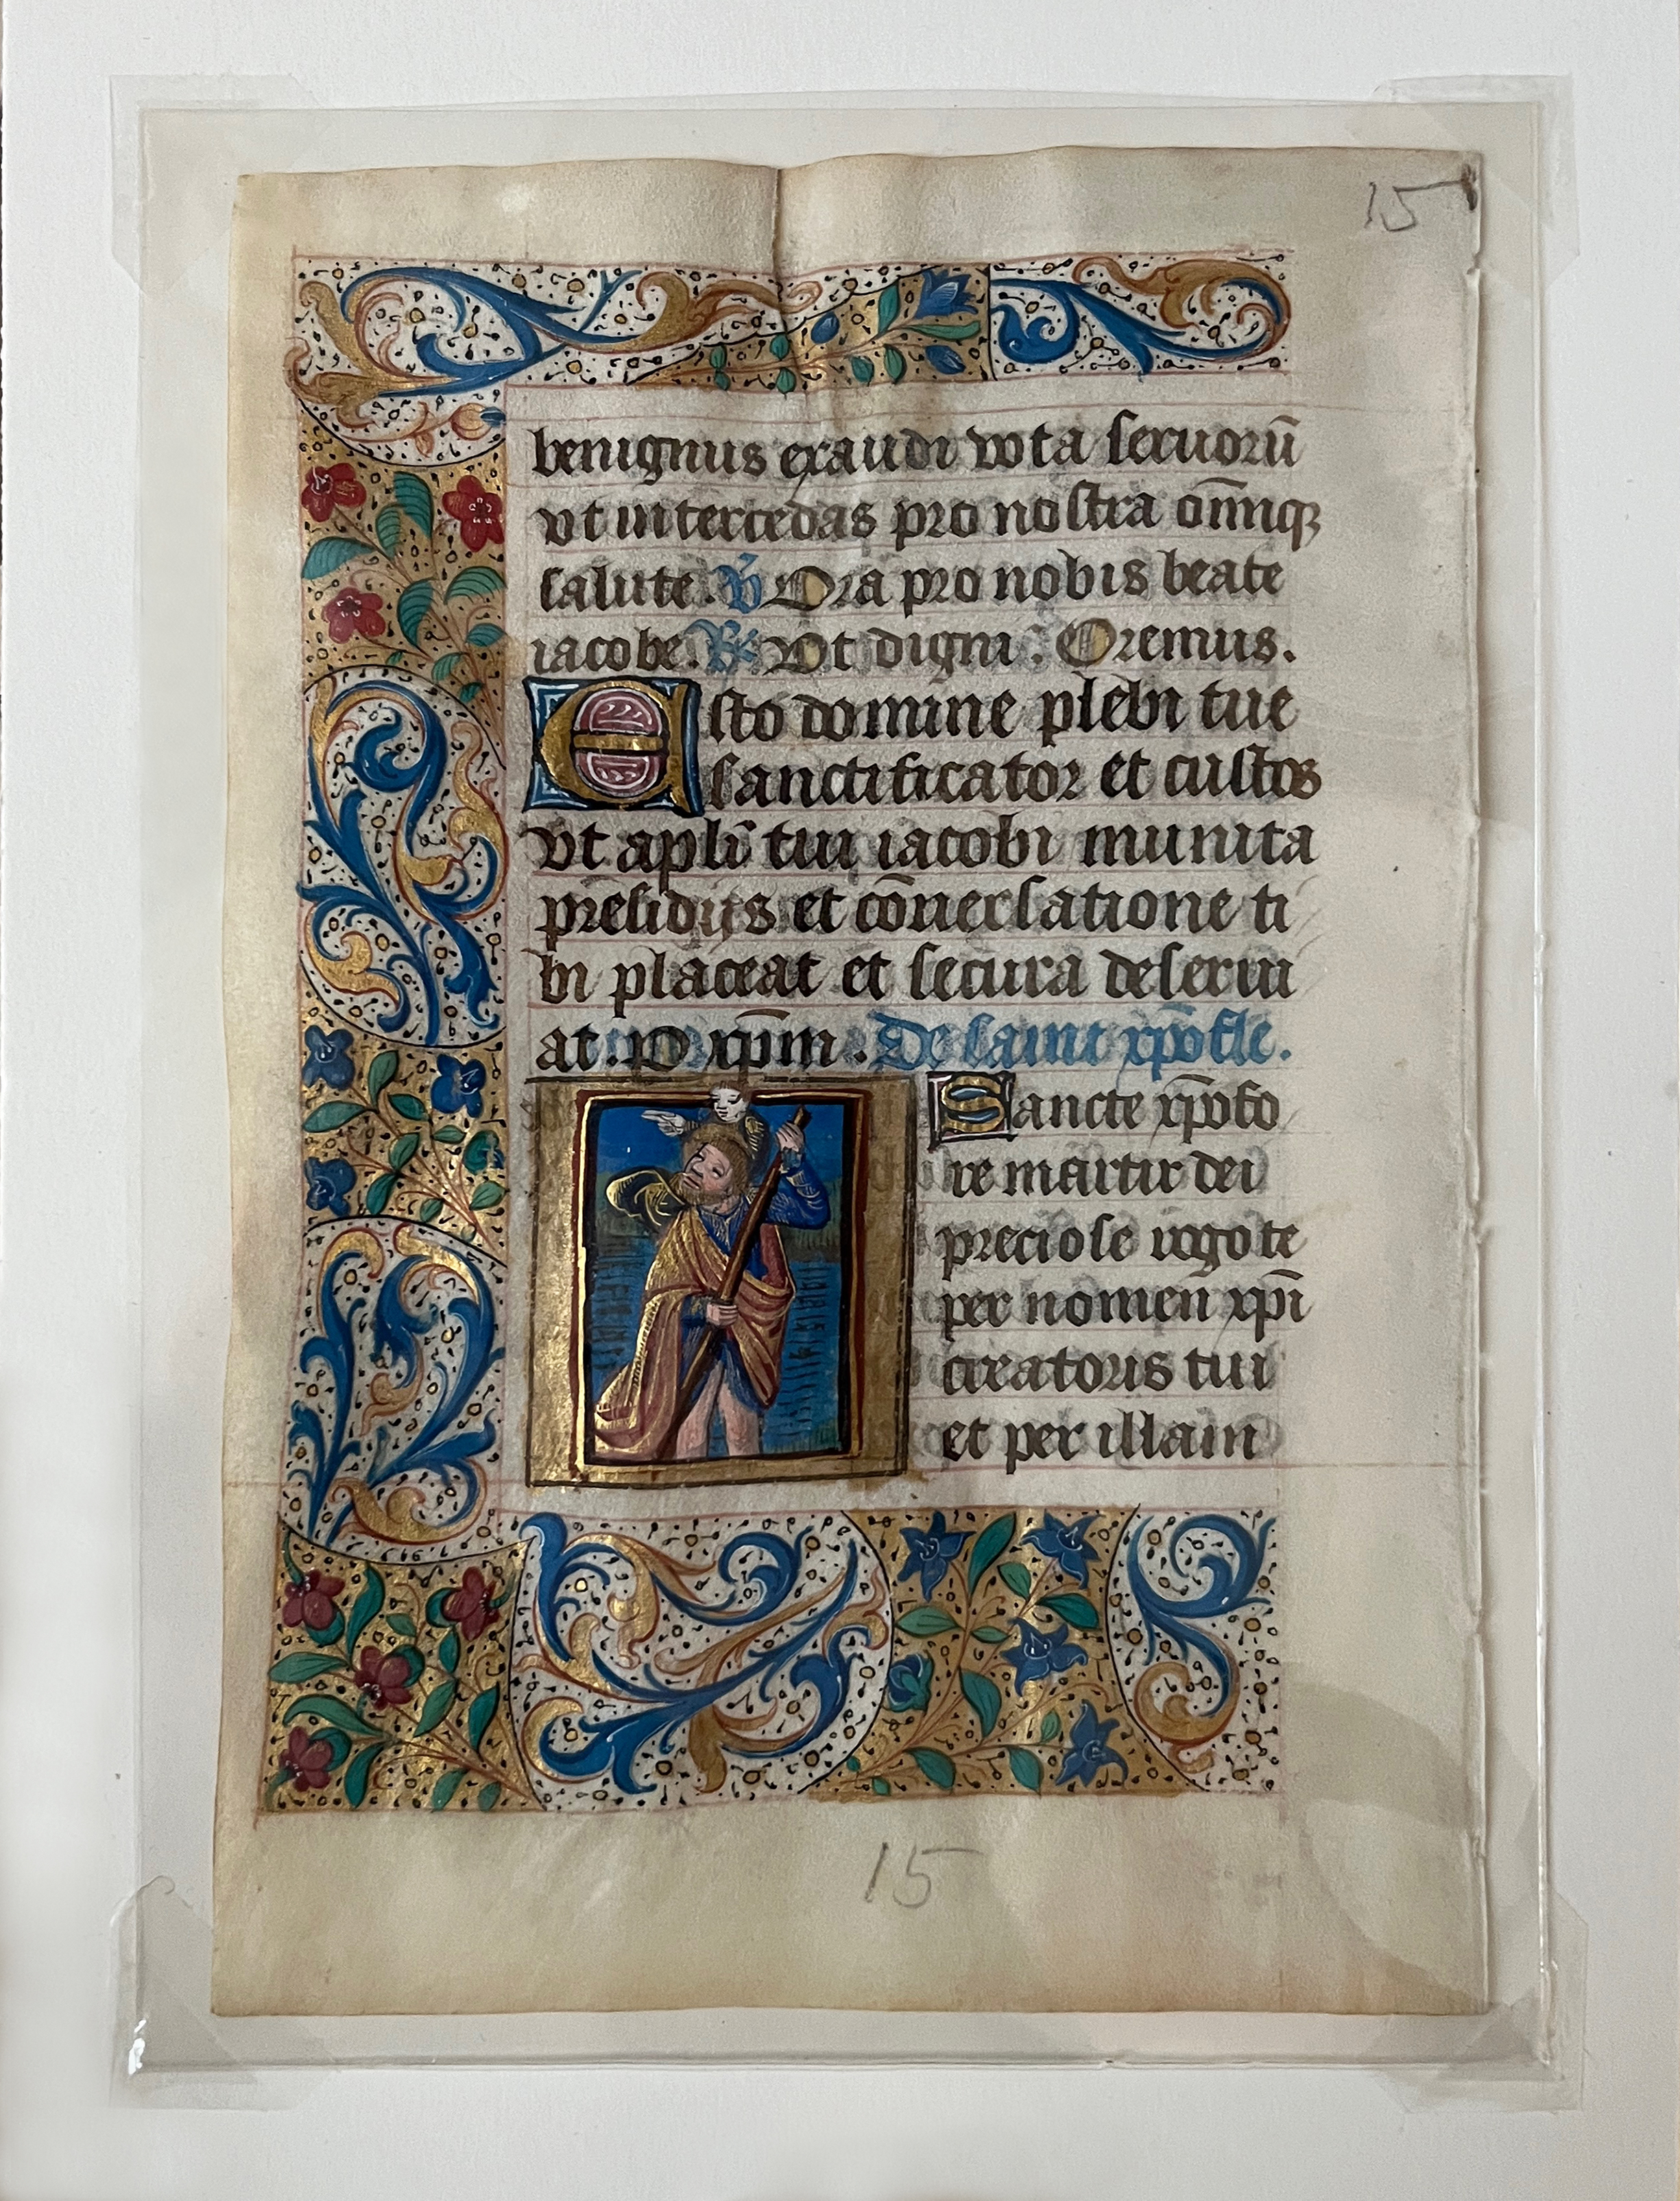 15
benignus exaudi vota seruorū
vt intercedas pro nostra om̄iq̃
salute. ℣ Ora pro nobis beate
iacobe. ℟ Vt digni. Oremus.
Esto domine plebi tue
sanctificator et custos
vt apl̄i tui iacobi munita
presidijs et cōuersatione ti
bi placeat et secura deserui
at. P xp̄m. De saint xp̄ofle.
Sancte xp̄ofo
re martir dei
preciose rogo te
per nomen xp̄i
creatoris tui
et per illam
15